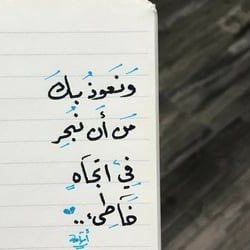 وَنَعوَذُ بِكَ
مَن أَن نُبحِر
فِيْ اتجَاَهٍ
خَاَطِئ، ..